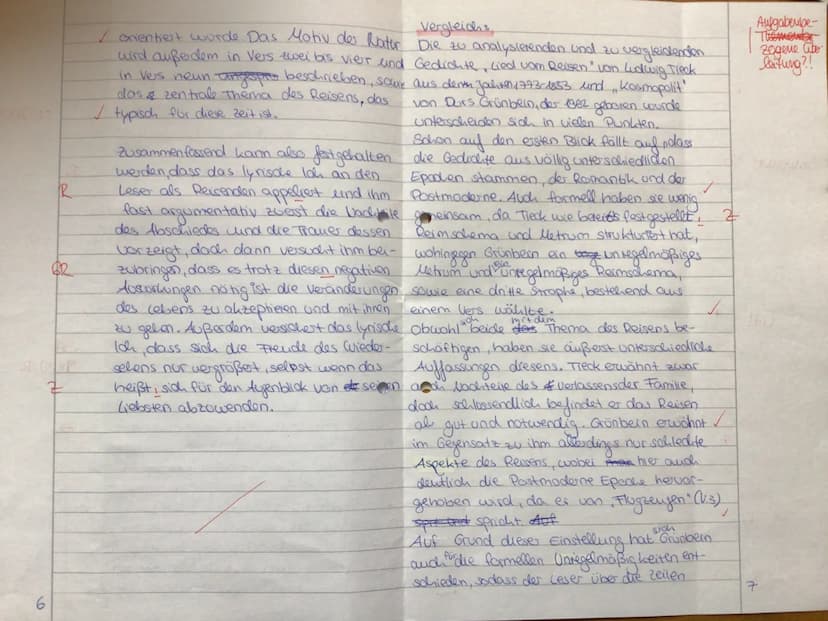 orientiert wurde. Das Motiv der Natur
wird außerdem in Vers zwei bis vier und
in Vers neun beschrieben, sowie
das zentrale Thema des Reisens, das
typisch für diese Zeit ist.
Zusammenfassend kann also festgehalten
werden, dass das lyrische Ich an den
R
Leser als Reisenden appeliert und ihm
fast argumentativ zuerst die Nachteile
des Abschiedes und die Trauer dessen
vorzeigt, doch dann versucht ihm bei-
GR
zubringen, dass es trotz diesen negativen
Auswirkungen nötig ist die Veränderungen
des Lebens zu akzeptieren und mit ihnen
zu gehen. Außerdem versichert das lyrische
Ich, dass sich die Freude des Wieder-
sehens nur vergrößert, selbst wenn das
Z
heißt, sich für den Augenblick von seinen
Liebsten abzuwenden.
6
Vergleich:
Die zu analysierenden und zu vergleichenden
Gedichte, „Lied vom Reisen" von Ludwig Tieck
aus den Jahren 1773-1853 und „Kosmopolit"
von Durs Grünbein, der 1962 geboren wurde
unterscheiden sich in vielen Punkten.
Schon auf den ersten Blick fällt auf, dass
die Gedichte aus völlig unterschiedlichen
Epochen stammen, der Romantik und der
Postmoderne. Auch formell haben sie wenig
gemeinsam, da Tieck wie bereits festgestellt,
Z
Reimschema und Metrum strukturiert hat,
wohingegen Grünbein ein unregelmäßiges
Metrum und ein unregelmäßiges Reimschema,
sowie eine dritte Strophe, bestehend aus
einem Vers wählte.
Obwohl sich beide mit dem Thema des Reisens be-
schäftigen, haben sie äußerst unterschiedliche
Auffassungen dessens. Tieck erwähnt zwar
auch Nachteile des Verlassens der Familie,
doch schlussendlich befindet er das Reisen
als gut und notwendig. Grünbein erwähnt
im Gegensatz zu ihm allerdings nur schlechte
Aspekte des Reisens, wobei hier auch
deutlich die Postmoderne Epoche hervor-
gehoben wird, da er von „Flugzeugen" (V.3)
spricht.
Auf Grund dieser Einstellung hat sich Grünbein
auch für die formellen Unregelmäßigkeiten ent-
schieden, sodass der Leser über die Zeilen
7
Aufgabenbe-
zogene Über-
leitung?!